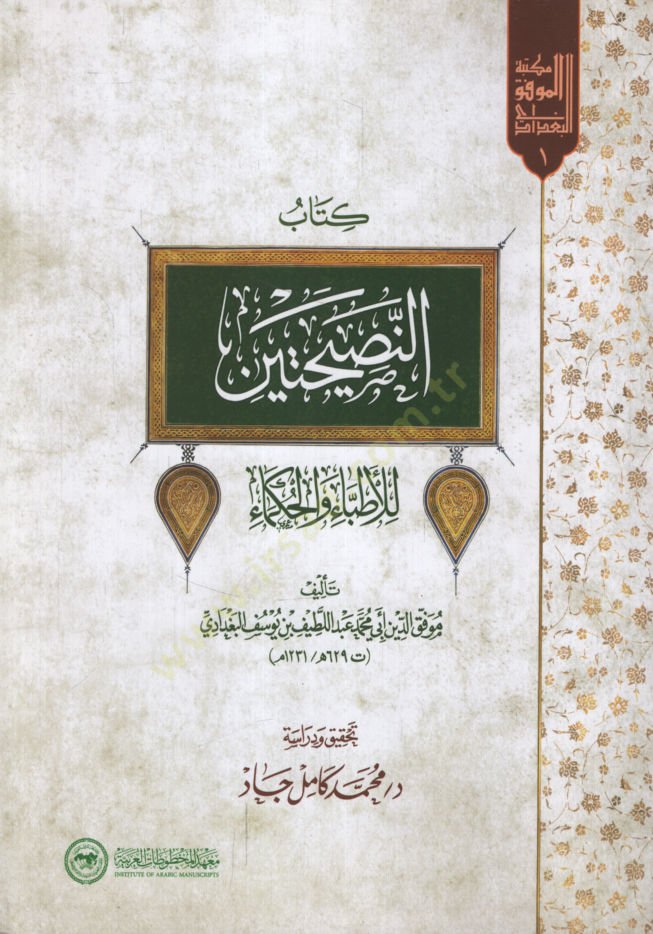 مكتبة
الموفق
البغدادي
١
كِتَابُ
النَّصِيحَتَيْنِ
لِلأَطِبَّاءِ وَالحُكَمَاءِ
تأليف
مُوَفَّق الدِّين أَبِي مُحَمَّد عَبْد اللَّطِيف بْن يُوسُف البَغْدَادِيّ
(ت ٦٢٩هـ/١٢٣١م)
تحقيق ودراسة
د/ محمد كامل جاد
معهد المخطوطات العربية
INSTITUTE OF ARABIC MANUSCRIPTS